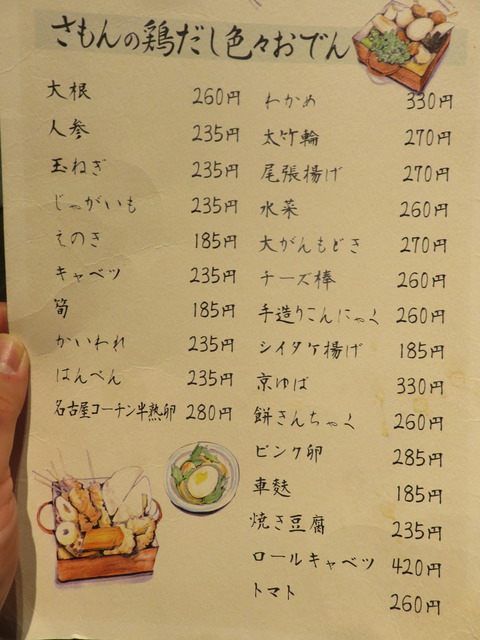 さもんの鶏だし色々おでん
大根 260円
人参 235円
玉ねぎ 235円
じゃがいも 235円
えのき 185円
キャベツ 235円
筍 185円
かいわれ 235円
はんぺん 235円
名古屋コーチン半熟卵 280円
わかめ 330円
太竹輪 270円
尾張揚げ 270円
水菜 260円
大がんもどき 270円
チーズ棒 260円
手造りこんにゃく 260円
シイタケ揚げ 185円
京ゆば 330円
餅きんちゃく 260円
ピンク卵 285円
車麩 185円
焼き豆腐 235円
ロールキャベツ 420円
トマト 260円